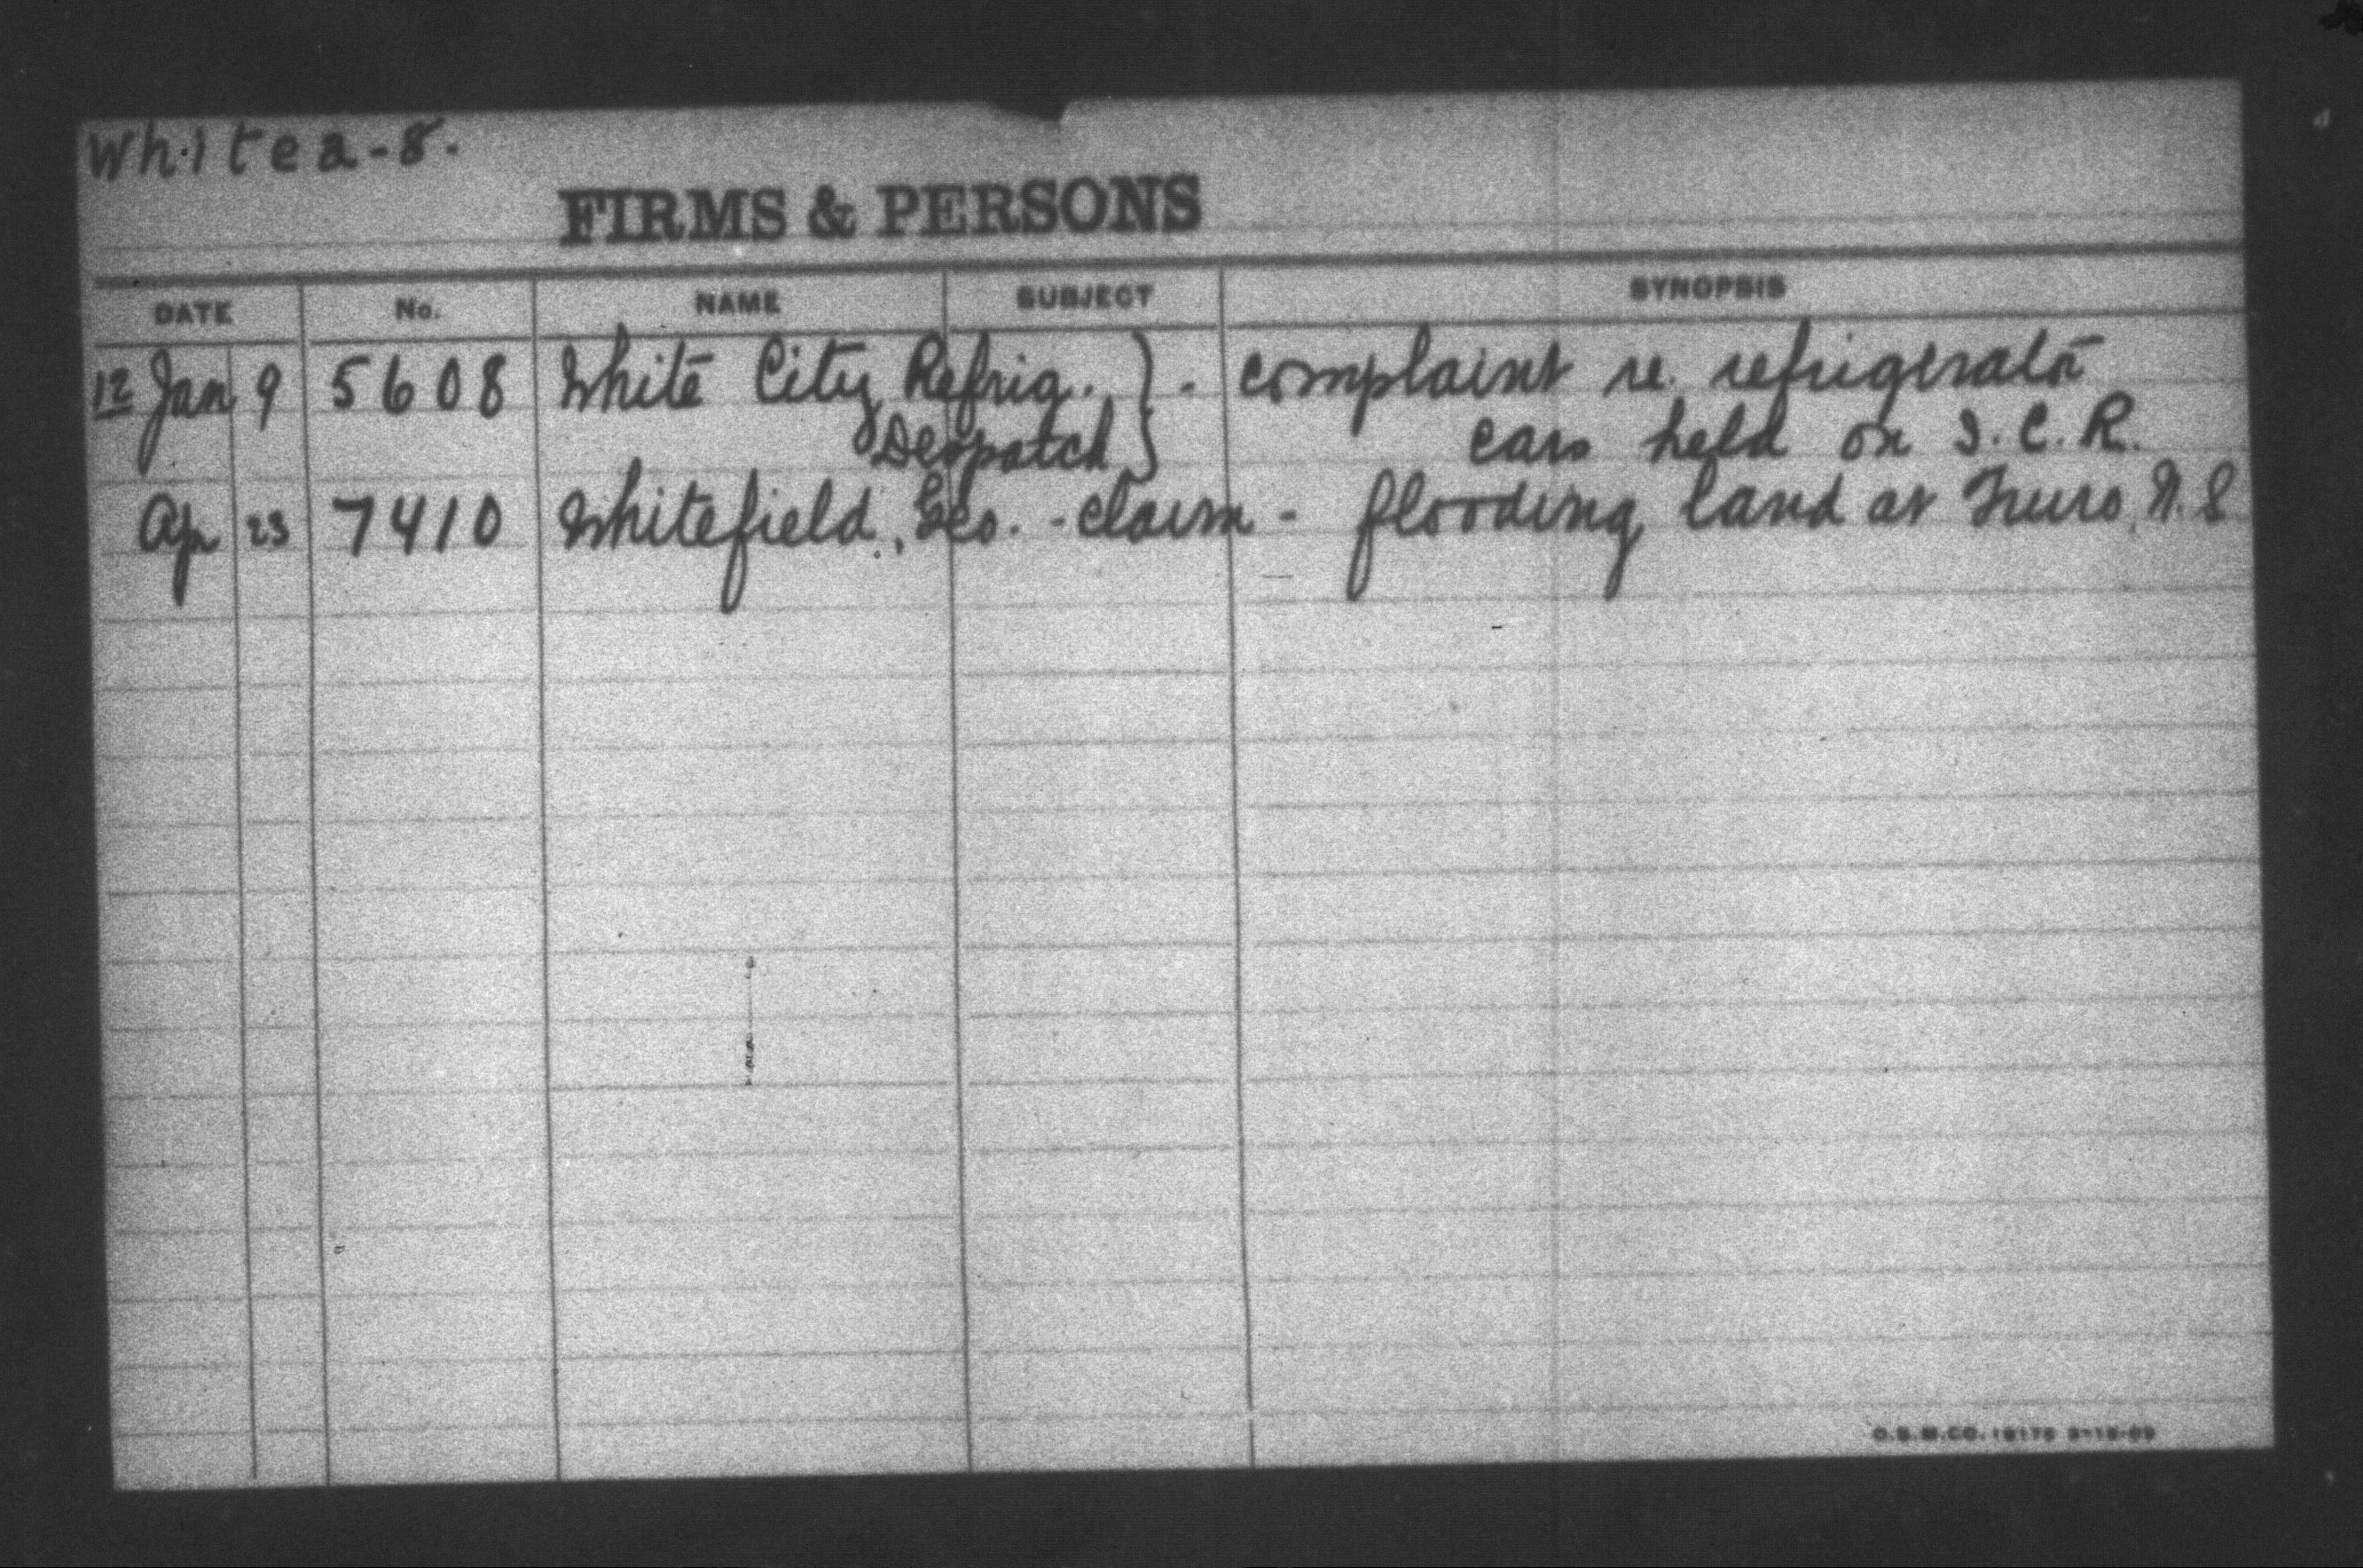 Whitea-8.
FIRMS & PERSONS
DATE No. NAME SUBJECT SYNOPSIS
12 Jan 9 5608 White City Refrig. } - complaint re. refrigerator
Despatch } cars held on I.C.R.
Ap 23 7410 Whitefield, Geo. - claim - flooding land at Truro, N.S
O.S.M.CO.